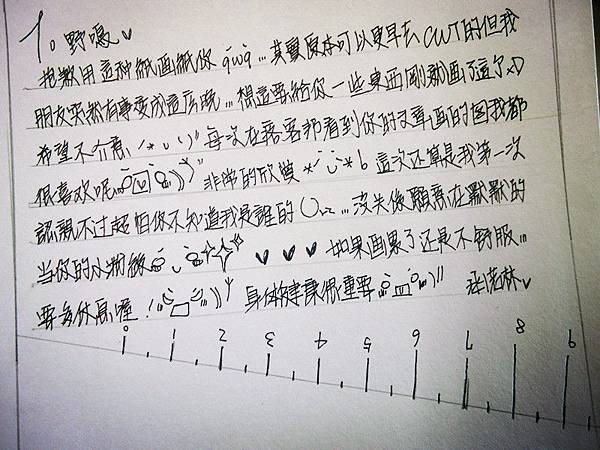 To. 野鳴♥
抱歉用这种紙画紙你 QwQ...其實原本可以更早去 CWT的但我
朋友突然有事变成這広晚...想這要給你一些東西剛就画了這个xD
希望不介意(*ˇvˇ)" 每次在路客邦看到你的文章画的图我都
很喜欢呢 )))" 非常的欣賞 *ˇvˇ*b 這次还算是我第一次
認親不过超怕你不知道我是誰的 Orz...沒关係願意在默默的
当你的小粉絲 ♥ ♥ ♥ 如果画累了还是不舒服...
要多休息喔! 身体健康很重要 )" 林♥
0 1 2 3 4 5 6 7 8 9